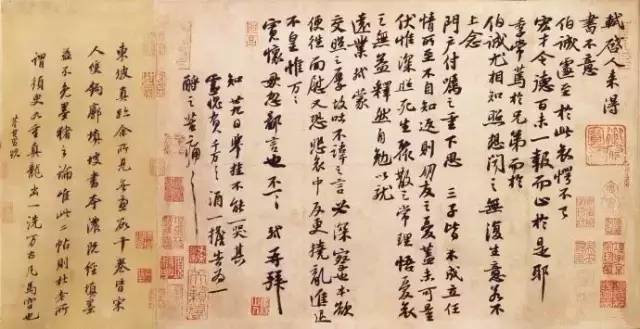 軾啓人来得
書不意
伯誠遽至於此哀愕不已
宏才令德百未一報而止於是耶
季常篤於兄弟而於
伯誠尤相知照想聞之無復生意若不
上念
門户付囑之重下思三子皆不成立任
情所至不自知返則朋友之憂蓋未可量
伏惟深照死生聚散之常理悟憂哀
之無益釋然自勉以就
遠業軾蒙
交照之厚故吐不諱之言必深察也本欲
便往面慰又恐悲哀中反更撓亂進退
不皇惟万万
寬懷毋忽鄙言也不一一軾再拜
知廿九日舉挂不能一哭其
靈愧負千万千万酒一擔告為一
酹之苦痛苦痛
東坡真跡余所見無慮數十卷皆宋
人雙鉤廓填坡書本濃既經填墨
益不免墨豬之論唯此二帖則杜老所
謂須臾九重真龍出一洗万古凡馬空也
董其昌題